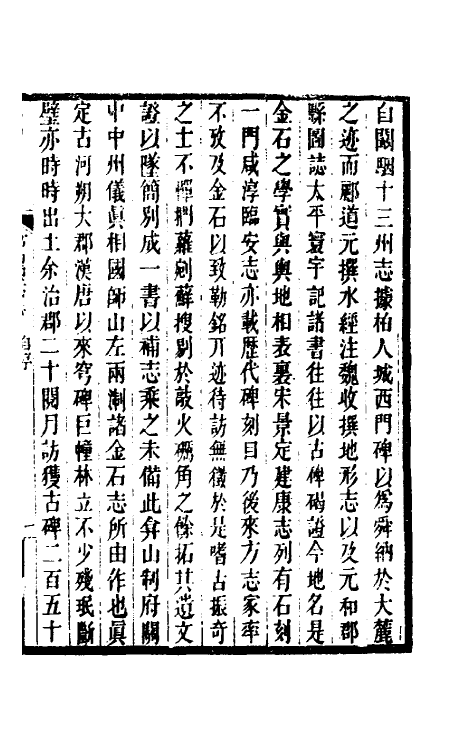 自闞駰十三州志據柏人城西門碑以爲舜納於大麓
之迹而酈道元撰水經注魏收撰地形志以及元和郡
縣圖誌太平寰宇記諸書往往以古碑碣證今地名是
金石之學實與輿地相表裏宋景定建康志列有石刻
一門咸淳臨安志亦載歷代碑刻目乃後來方志家率
不攷及金石以致勒銘刓迹待訪無徵於是嗜古振奇
之士不憚捫蘿剜蘚搜剔於敲火礪角之餘拓其遺文
證以墜簡別成一書以補志乘之未備此弇山制府關
中中州儀眞相國師山左兩淛諸金石志所由作也眞
定古河朔大郡漢唐以來穹碑巨幢林立不少殘珉斷
璧亦時時出土余治郡二十閱月訪獲古碑二百五十
自序
一